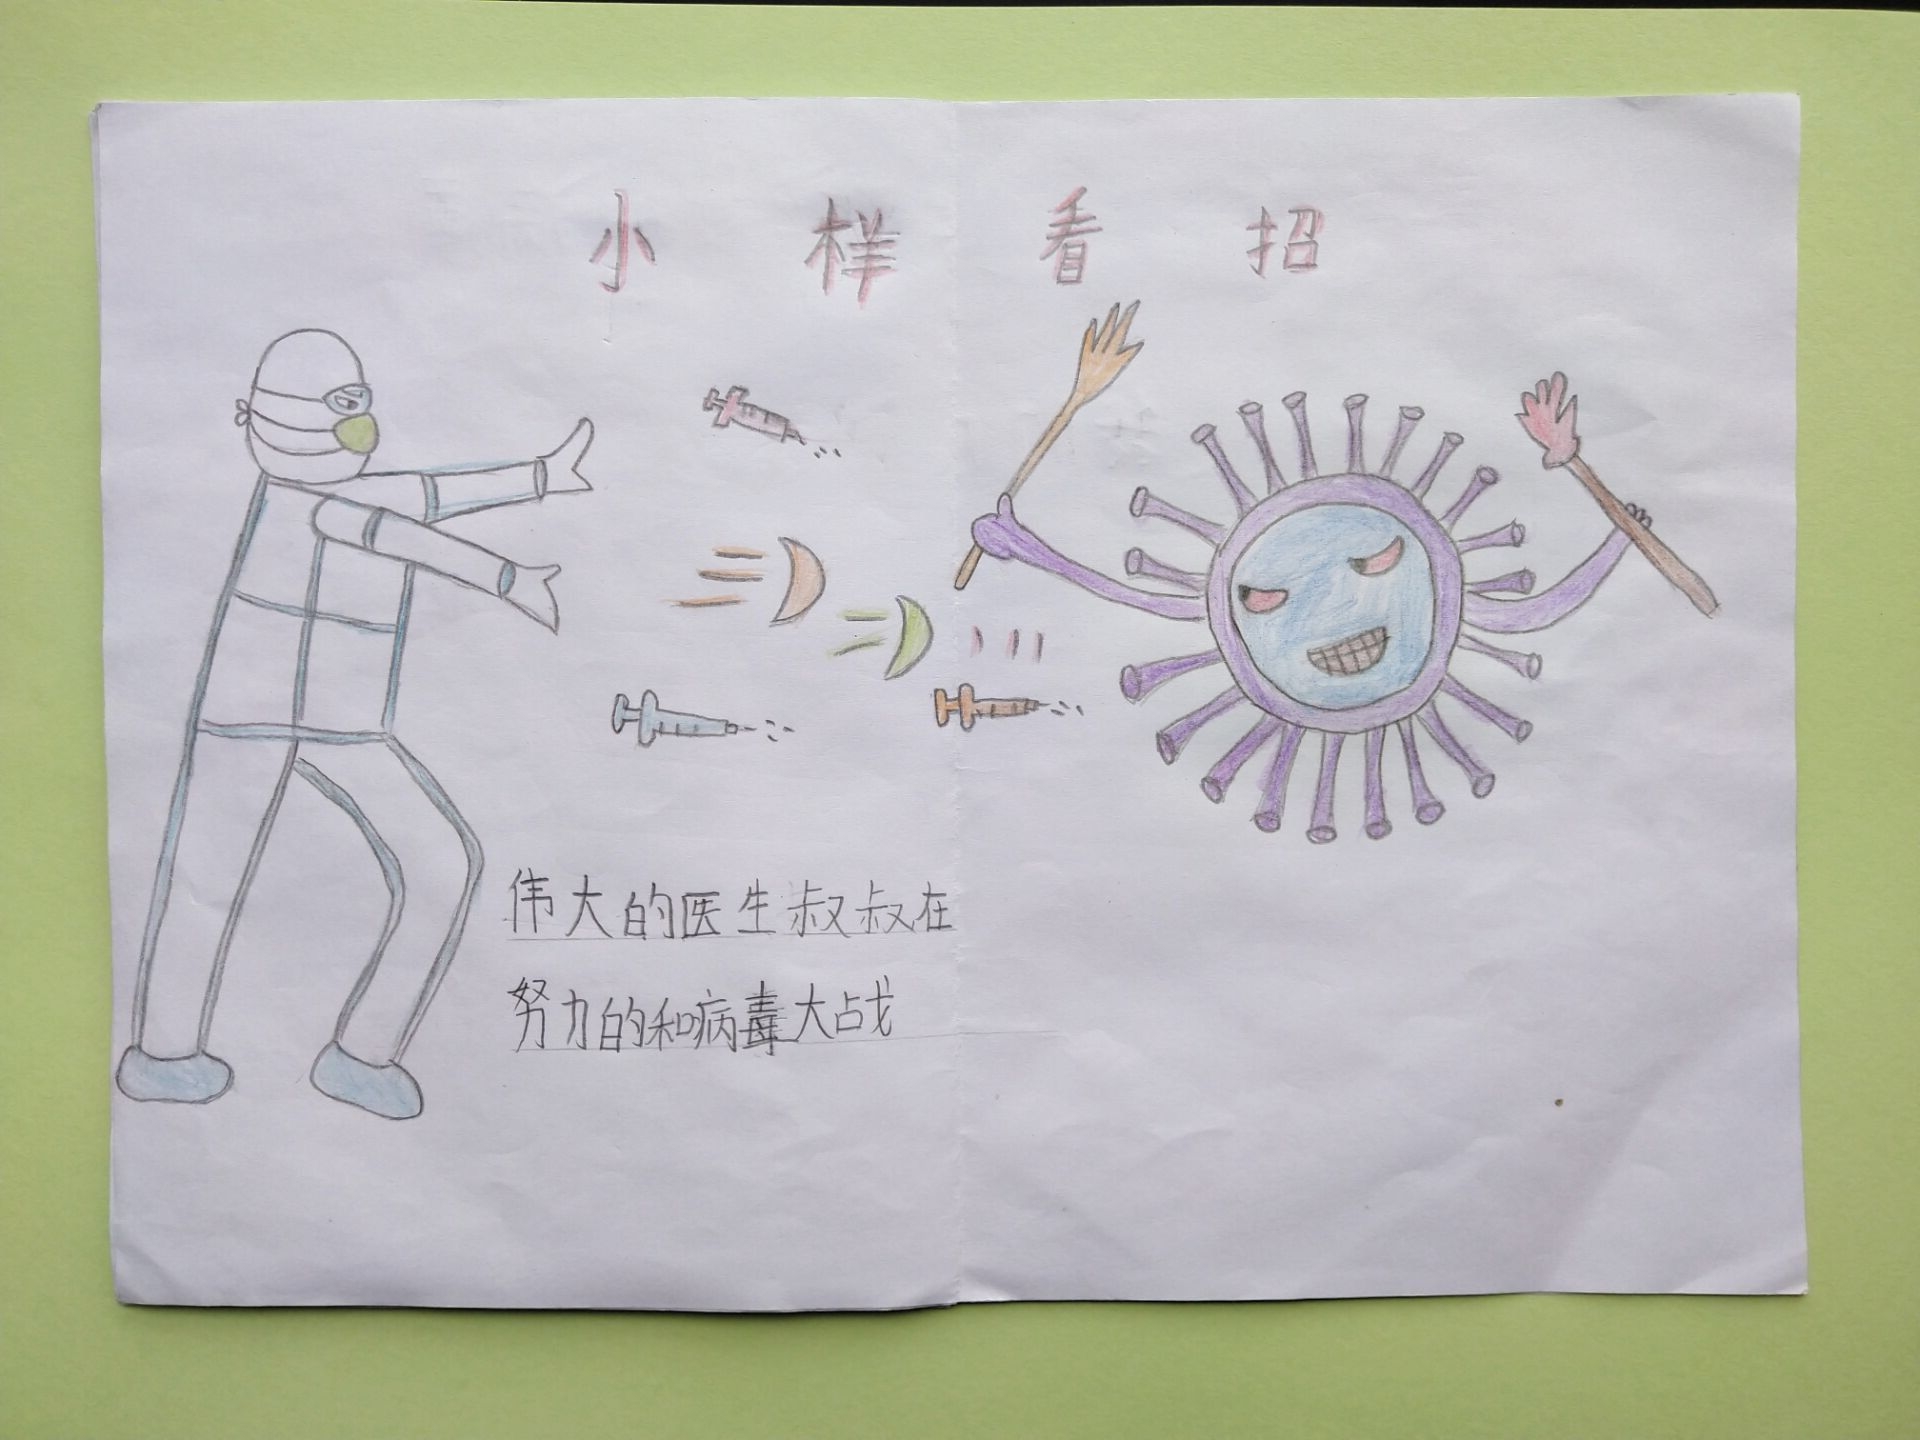 小样看招
伟大的医生叔叔在
努力的和病毒大战